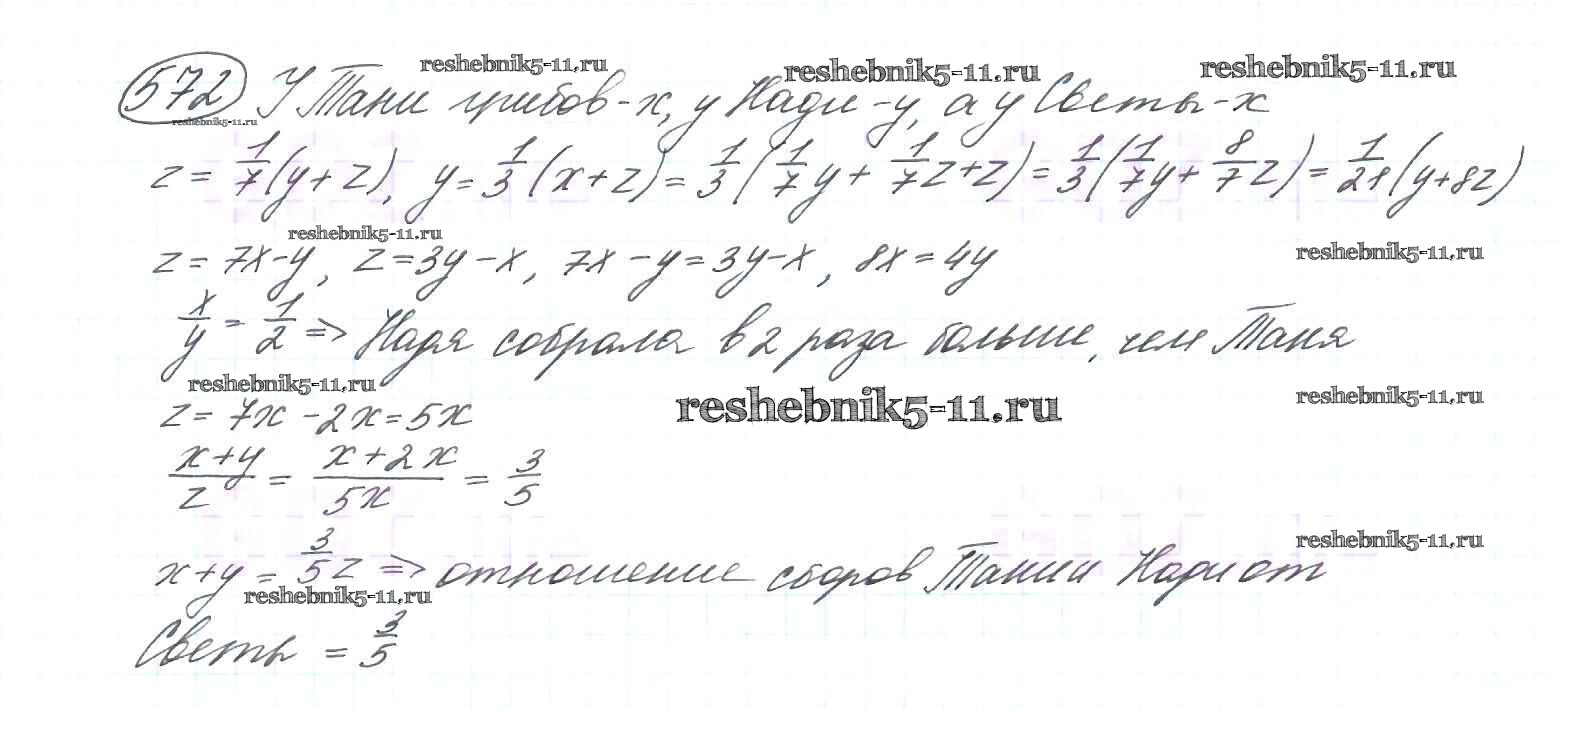 reshebnik5-11.ru reshebnik5-11.ru reshebnik5-11.ru
572 У Тани грибов - x, у Нади - y, а у Светы - x
reshebnik5-11.ru
z = 1/7 (y + z), y = 1/3 (x + z) = 1/3 (1/7 y + 1/7 z + z) = 1/3 (1/7 y + 8/7 z) = 1/21 (y + 8z)
reshebnik5-11.ru reshebnik5-11.ru
z = 7x - y, z = 3y - x, 7x - y = 3y - x, 8x = 4y
x/y = 1/2 => Надя собрала в 2 раза больше, чем Таня
reshebnik5-11.ru reshebnik5-11.ru reshebnik5-11.ru
z = 7x - 2x = 5x
(x + y)/z = (x + 2x)/5x = 3/5
reshebnik5-11.ru
x + y = 3/5 z => отношение сборов Тани и Нади от
reshebnik5-11.ru
Светы = 3/5